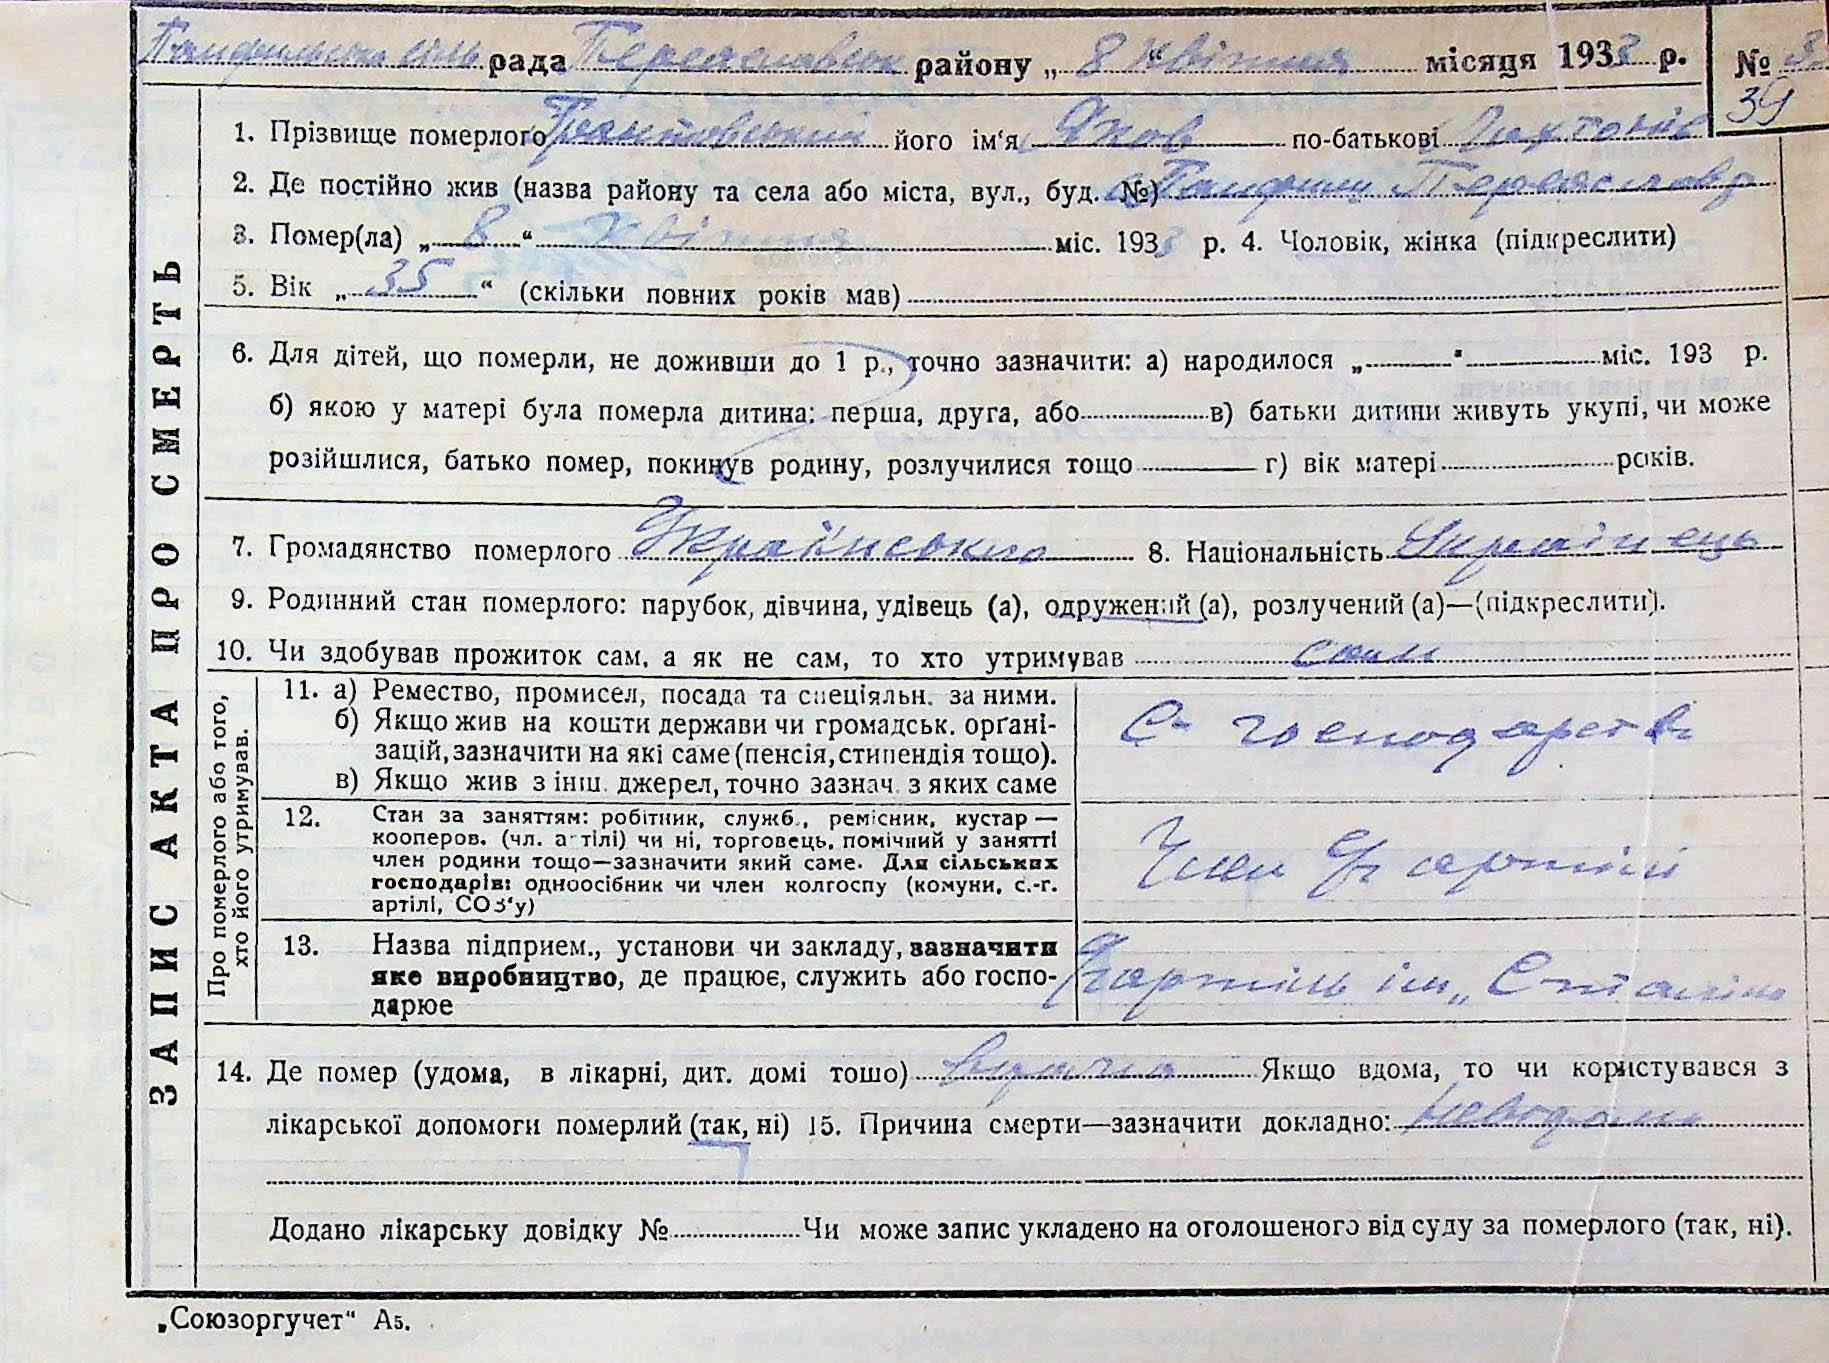 рада Переяславськ району „ 8 “ квітня місяця 1933 р. №
39
ЗАПИС АКТА ПРО СМЕРТЬ
1. Прізвище померлого його ім‘я Яков по-батькові
2. Де постійно жив (назва району та села або міста, вул., буд. №)
3. Помер(ла) „ 8 “ квітня міс. 1933 р. 4. Чоловік, жінка (підкреслити)
5. Вік „ 35 “ (скільки повних років мав)
6. Для дітей, що померли, не доживши до 1 р., точно зазначити: а) народилося „ “ міс. 193 р.
б) якою у матері була померла дитина: перша, друга, або в) батьки дитини живуть укупі, чи може
розійшлися, батько помер, покинув родину, розлучилися тощо г) вік матері років.
7. Громадянство померлого Українського 8. Національність Українець
9. Родинний стан померлого: парубок, дівчина, удівець (а), одружений (а), розлучений (а)—(підкреслити).
10. Чи здобував прожиток сам, а як не сам, то хто утримував сам
Про померлого або того,
хто його утримував.
11. а) Ремество, промисел, посада та спеціяльн. за ними.
б) Якщо жив на кошти держави чи громадськ. орґані-
зацій, зазначити на які саме (пенсія, стипендія тощо).
в) Якщо жив з інш. джерел, точно зазнач. з яких саме
С- господарстві
12. Стан за заняттям: робітник, служб., ремісник, кустар —
кооперов. (чл. артілі) чи ні, торговець, помічний у занятті
член родини тощо—зазначити який саме. Для сільських
господарів: одноосібник чи член колгоспу (комуни, с.-г.
артілі, СОЗ‘у)
Член артілі
13. Назва підприєм., установи чи закладу, зазначити
яке виробництво, де працює, служить або госпо-
дарює
артіль ім „ Сталіна
14. Де помер (удома, в лікарні, дит. домі тошо) вдома Якщо вдома, то чи користувався з
лікарської допомоги померлий (так, ні) 15. Причина смерти—зазначити докладно: невідома
Додано лікарську довідку № Чи може запис укладено на оголошеного від суду за померлого (так, ні).
„Союзоргучет“ А5.